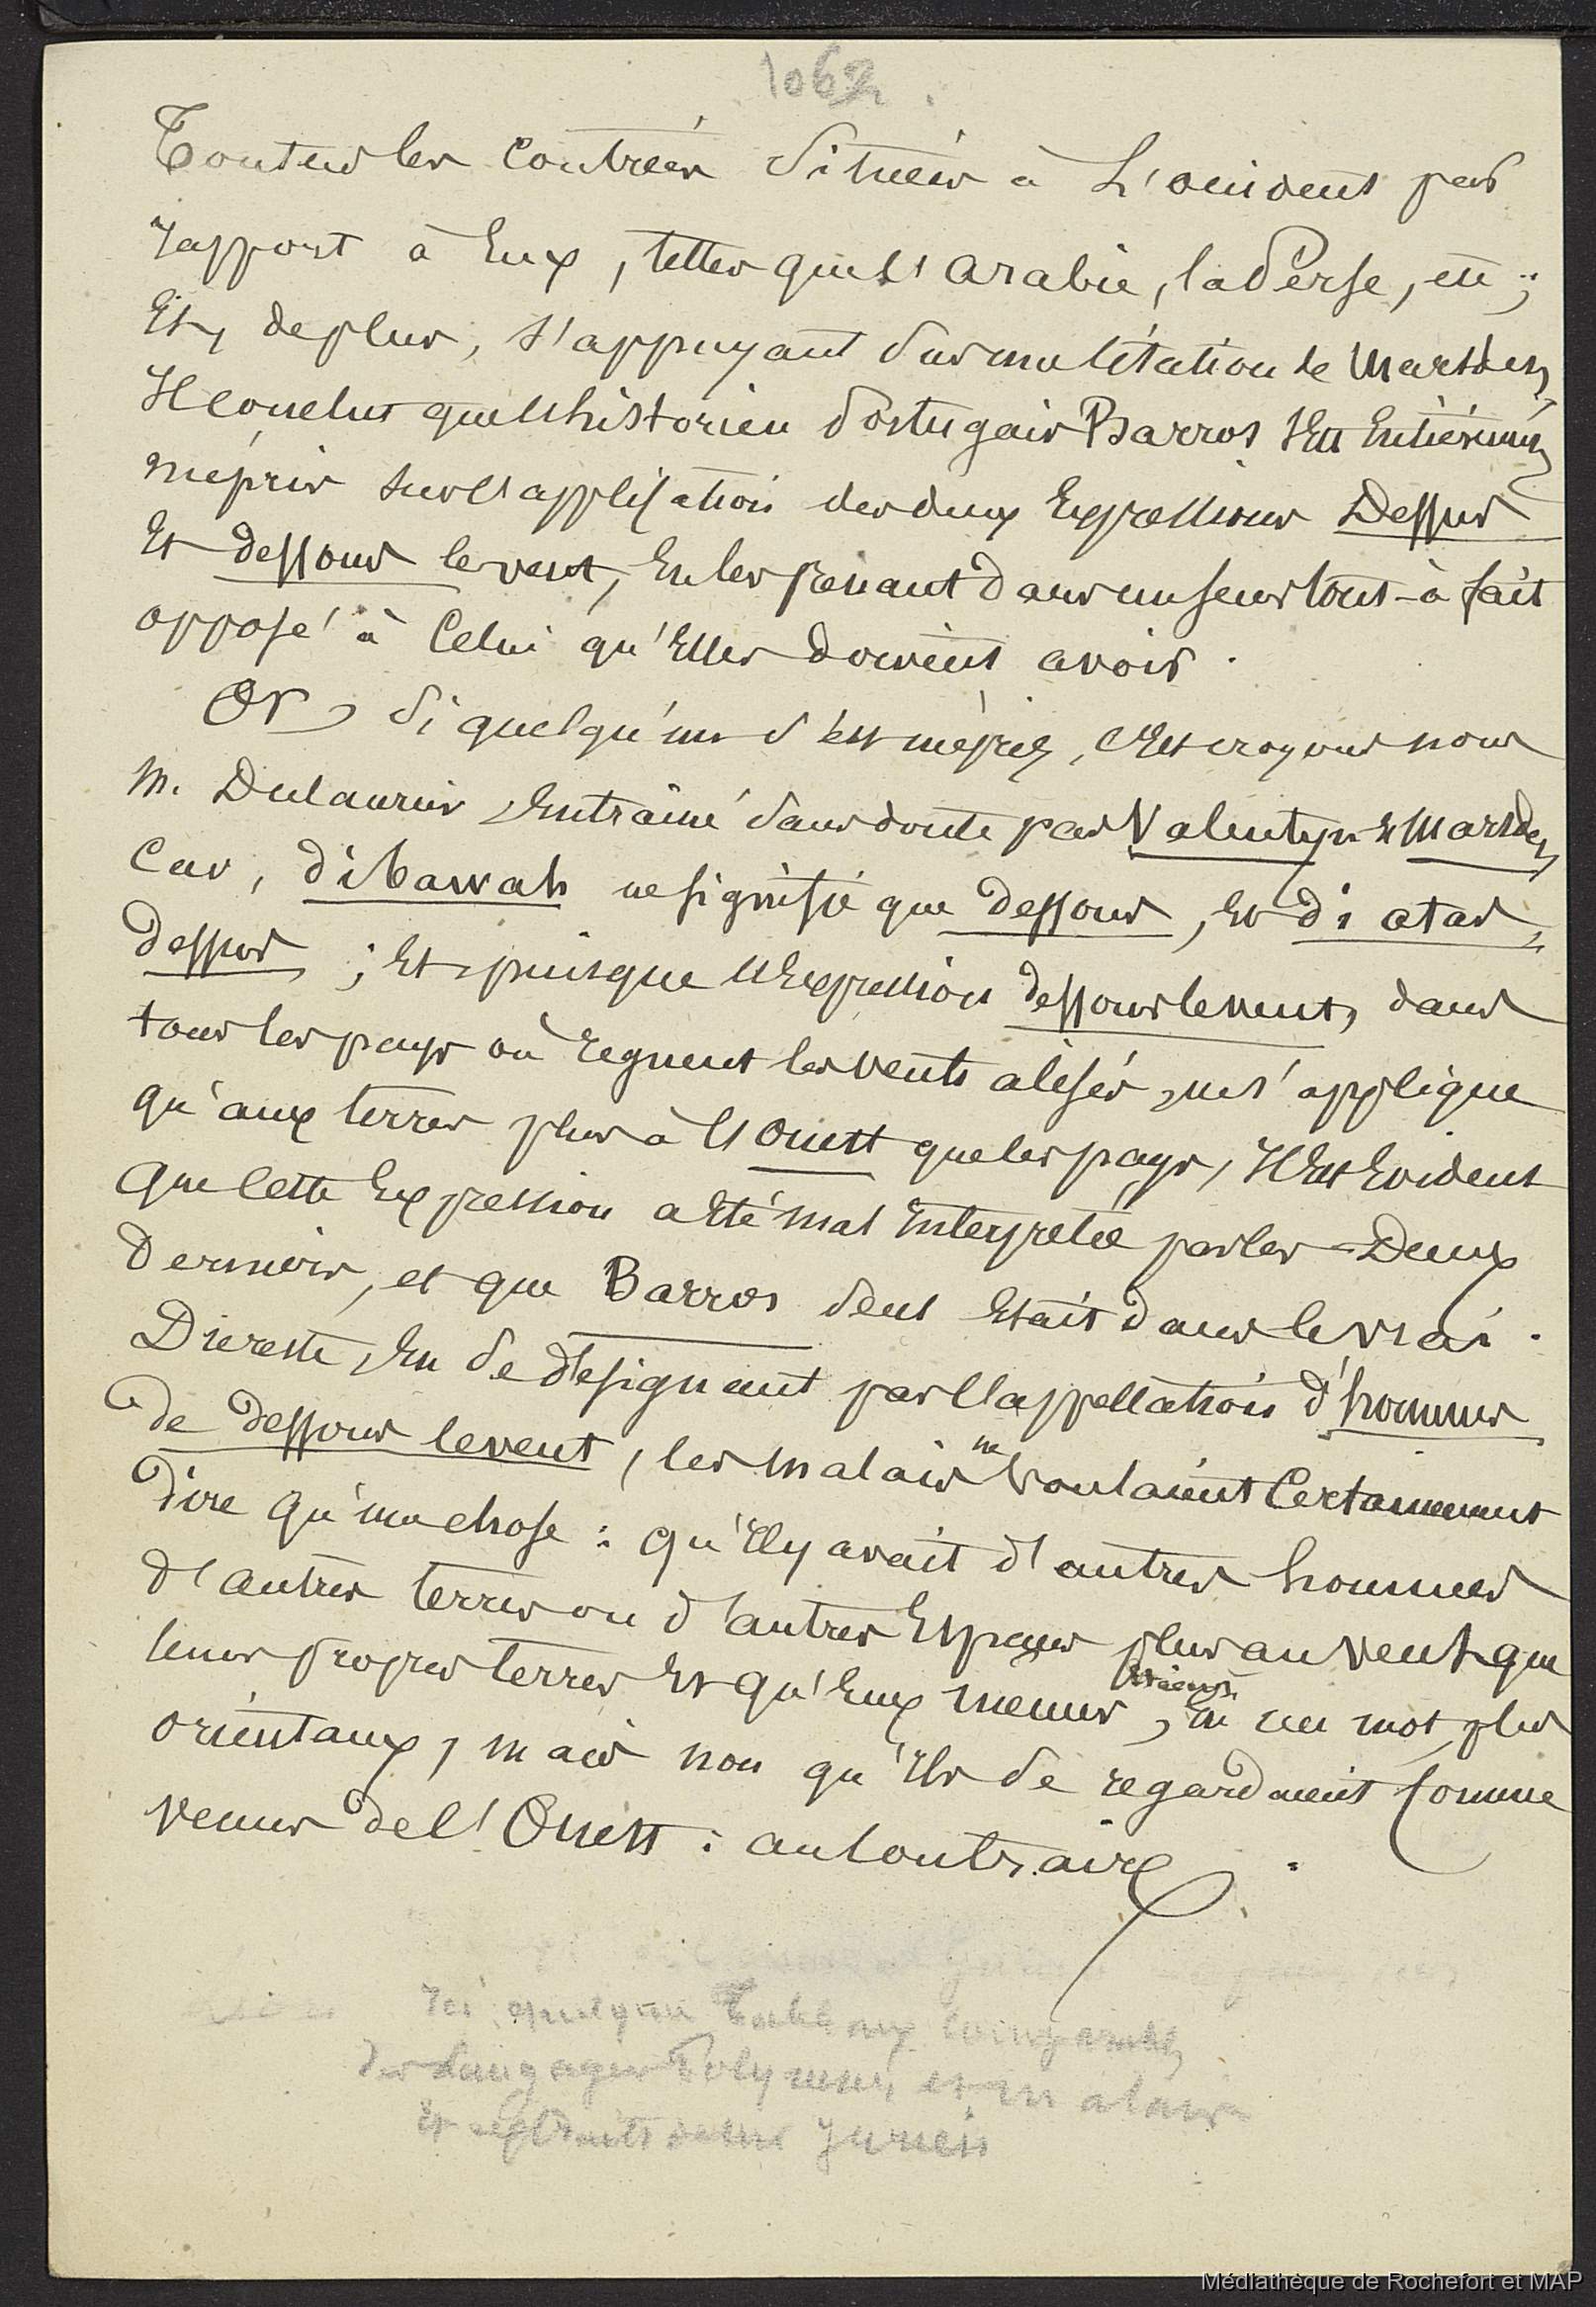 1062.
Toutes les Contrées Situées à L'occident par
rapport à Eux, telles que l'Arabie, la Perse, etc;
Et, de plus, s'appuyant sur une Citation de Marsden,
Il conclut que l'historien Portugais Barros s'est Entièrement
mépris sur l'application des deux Expressions Dessus
Et dessous le vent, En les prenant dans un sens tout-à fait
opposé à Celui qu'Elles doivent avoir.
Or, Si quelqu'un s'est mépris, c'Est croyons nous
M. Dulaurier, Entrainé Sans doute par Valentyn & Marsden,
Car, di bawah ne signifie que dessous, Et di atas,
dessus; Et, puisque l'Expression dessous le vent, dans
tous les pays où règnent les vents alisés, ne s'applique
qu'aux terres plus à l'Ouest que les pays, Il Est Evident
Que Cette Expression a Eté mal Interpretée par les Deux
Derniers, et que Barros Seul Etait dans le vrai.
Du reste, En Se désignant par l'appellation d'hommes
de dessous le vent, les Malais ne voulaient Certainement
Dire qu'une chose: qu'Il y avait d'autres hommes
d'autres terres ou d'autres Espaces plus au vent que
leurs propres terres Et qu'Eux mêmes, étaient en un mot, plus
orientaux, mais non qu'Ils Se regardaient Comme
venus de l'Ouest: au Contraire.
Ici quelques Tableaux comparatifs
des Langages Polynésiens et Malais
Et extraits de
Médiathèque de Rochefort et MAP